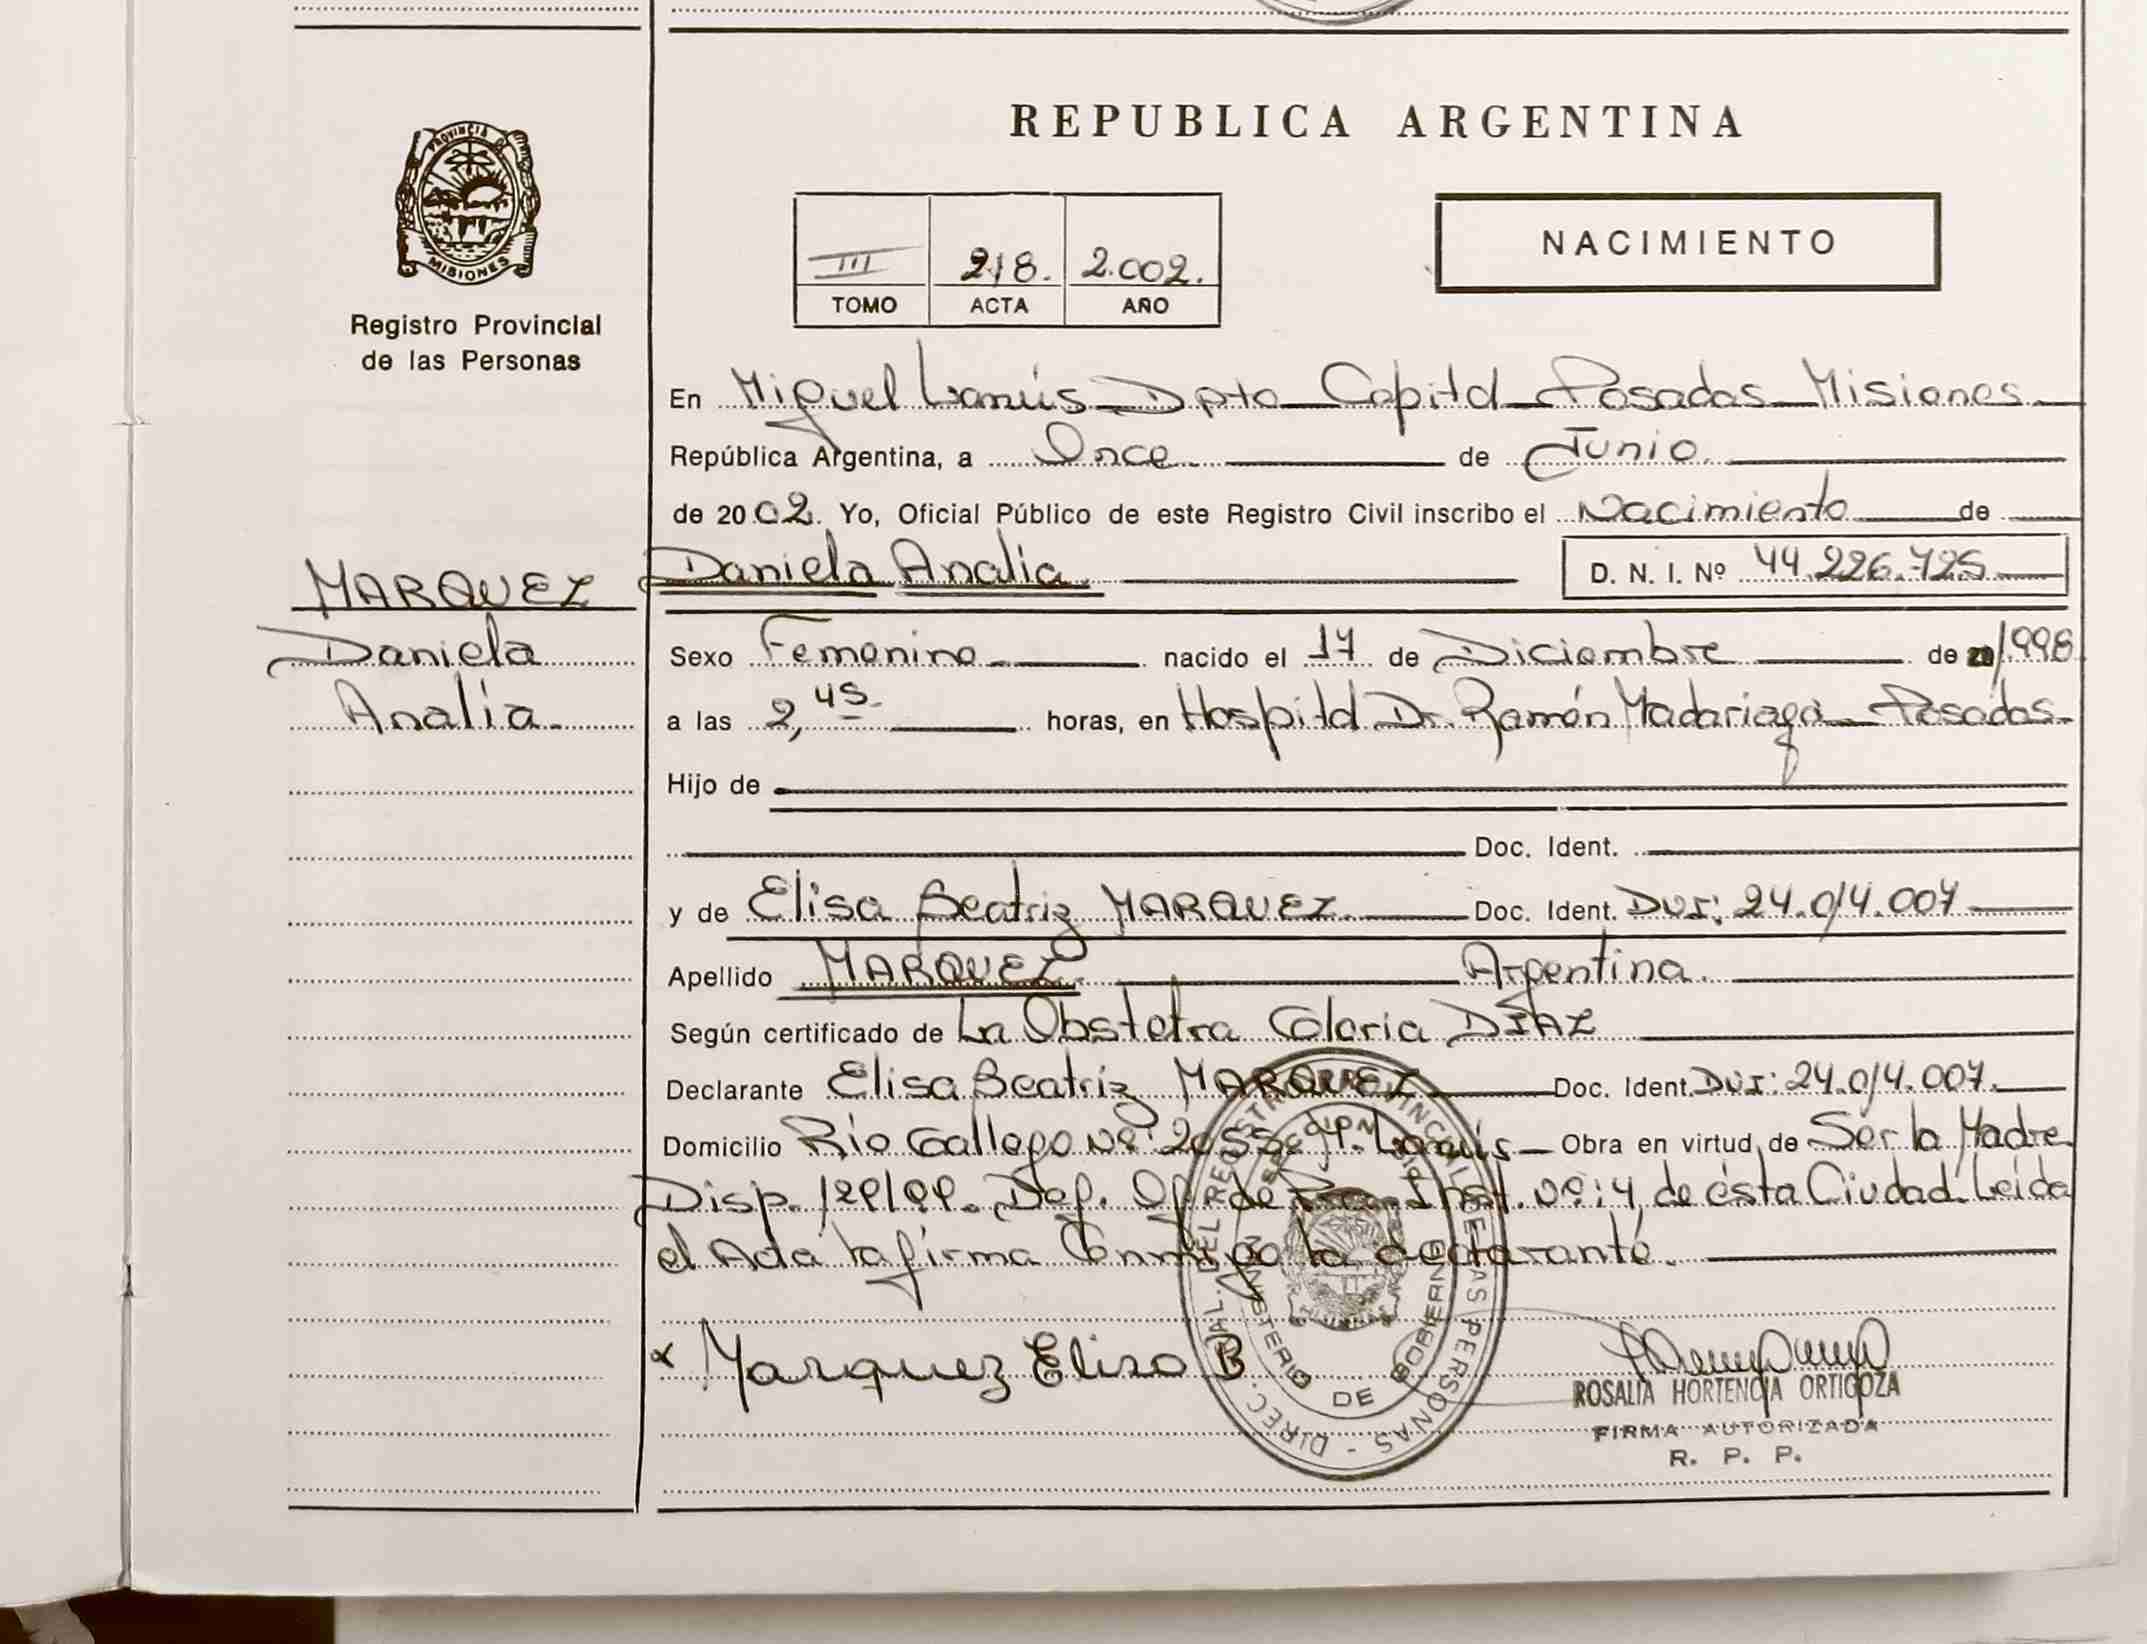 REPUBLICA ARGENTINA
PROVINCIA D
MISIONES
Registro Provincial
de las Personas
III 218. 2.002.
TOMO ACTA AÑO
NACIMIENTO
En Miguel Lanús Dpto Capital Posadas Misiones
República Argentina, a Once de Junio
de 2002. Yo, Oficial Público de este Registro Civil inscribo el Nacimiento de
MARQUEZ
Daniela
Analía
Daniela Analía D. N. I. Nº 44.226.725
Sexo Femenino nacido el 17 de Diciembre de 1998
a las 2,45 horas, en Hospital Dr. Ramón Madariaga Posadas
Hijo de
Doc. Ident.
y de Elisa Beatriz MARQUEZ Doc. Ident. DNI: 24.014.007
Apellido MARQUEZ Argentina.
Según certificado de La Obstetra Gloria DÍAZ
Declarante Elisa Beatriz MARQUEZ Doc. Ident. DNI: 24.014.007.
Domicilio Río Gallego Nº: 2055 Lanús Obra en virtud de Ser la Madre
Disp. Def. Of. de Inst. Nº: 4 de ésta Ciudad. Leída
el Acta la firma Conmigo la declarante.
Marquez Elisa B
DIREC. GRAL. DEL REGISTRO PROVINCIAL DE LAS PERSONAS
MINISTERIO DE GOBIERNO
ROSALIA HORTENCIA ORTIGOZA
FIRMA AUTORIZADA
R. P. P.